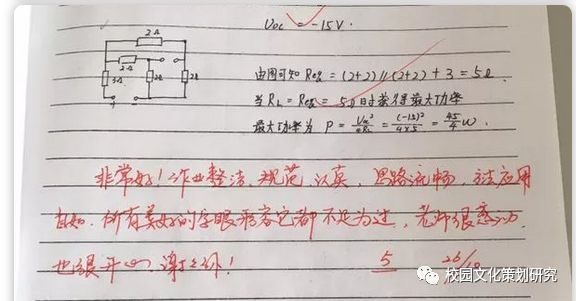 Uoc = -15V.
2Ω
2Ω
3Ω 2Ω 2Ω
由图可知 Req = (2+2)//(2+2)+3 = 5Ω.
当 RL = Req = 5Ω 时获得最大功率
最大功率为 P = Uoc²/4RL = (-15)²/4×5 = 45/4 W.
非常好！作业整洁、规范、认真，思路流畅，方法应用
自如，所有美好的字眼形容它都不足为过，老师很感动
也很开心，谢谢你！
5 26/10
校园文化策划研究